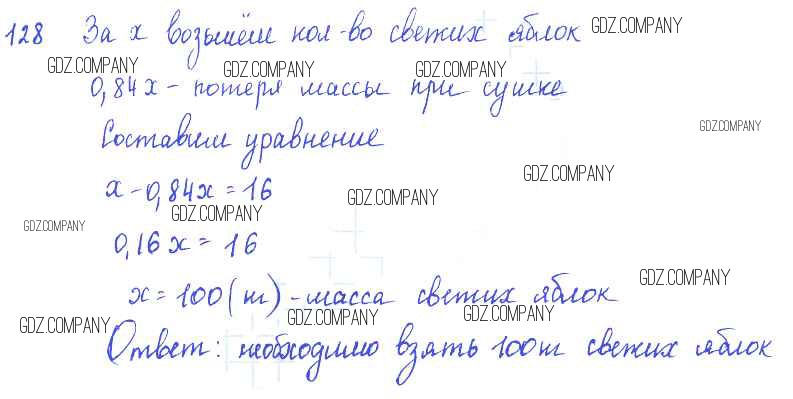 128 За x возьмём кол-во свежих яблок GDZ.COMPANY
GDZ.COMPANY GDZ.COMPANY GDZ.COMPANY
0,84x - потеря массы при сушке
Составим уравнение GDZ.COMPANY
x - 0,84x = 16 GDZ.COMPANY
GDZ.COMPANY GDZ.COMPANY GDZ.COMPANY
0,16x = 16
x = 100 (кг) - масса свежих яблок GDZ.COMPANY
GDZ.COMPANY GDZ.COMPANY GDZ.COMPANY
Ответ: необходимо взять 100кг свежих яблок